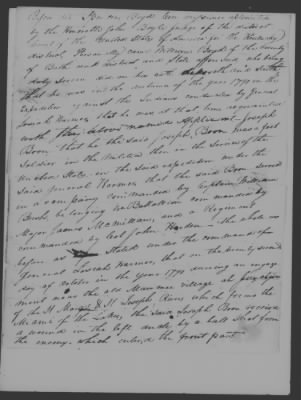 Before me Stephen Boyd Com
by the Honorable John Boyle Judge of the district
Court of the United States of America for the Kentucky
district, Personally came William Boyd of the County
of Bath and District and State aforesaid who being
duly sworn did on his oath depose and saith
that he was out in the autumn of the year 1790 on the
expedition against the Indians under General
Josiah Harmar that he was at that time acquainted
with the above named Applicant Joseph
Boon that he the said Joseph Boon was a foot
Soldier in the Militia then in the service of the
United States in the said expedition under the
said General Harmar that the said Boon served
in a company commanded by Captain William
Bush, belonging to a Battalion commanded by
Major James McMillian, and a Regiment
commanded by Col. John Hardin the whole as
before as Stated under the command of
General Josiah Harmar, that on the twenty second
day of October in the Year 1790 during an engage
ment near the old Maumee village at
of the St. Marys & St. Joseph Rivers which forms the
Miami of the Lakes, the said Joseph Boon received
a wound in the left made by a ball shot from
the enemy which entered the front part